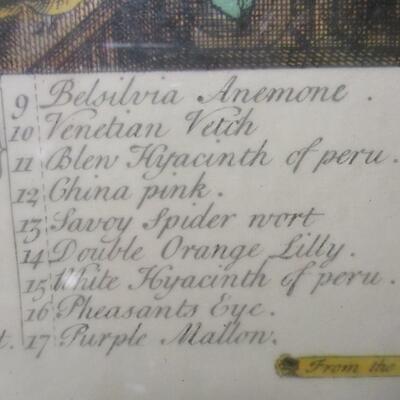 9 Belsilvia Anemone.
10 Venetian Vetch
11 Blew Hyacinth of peru.
12 China pink.
13 Savoy Spider wort
14 Double Orange Lilly.
15 White Hyacinth of peru.
16 Pheasants Eye.
t. 17 Purple Mallow.
From the